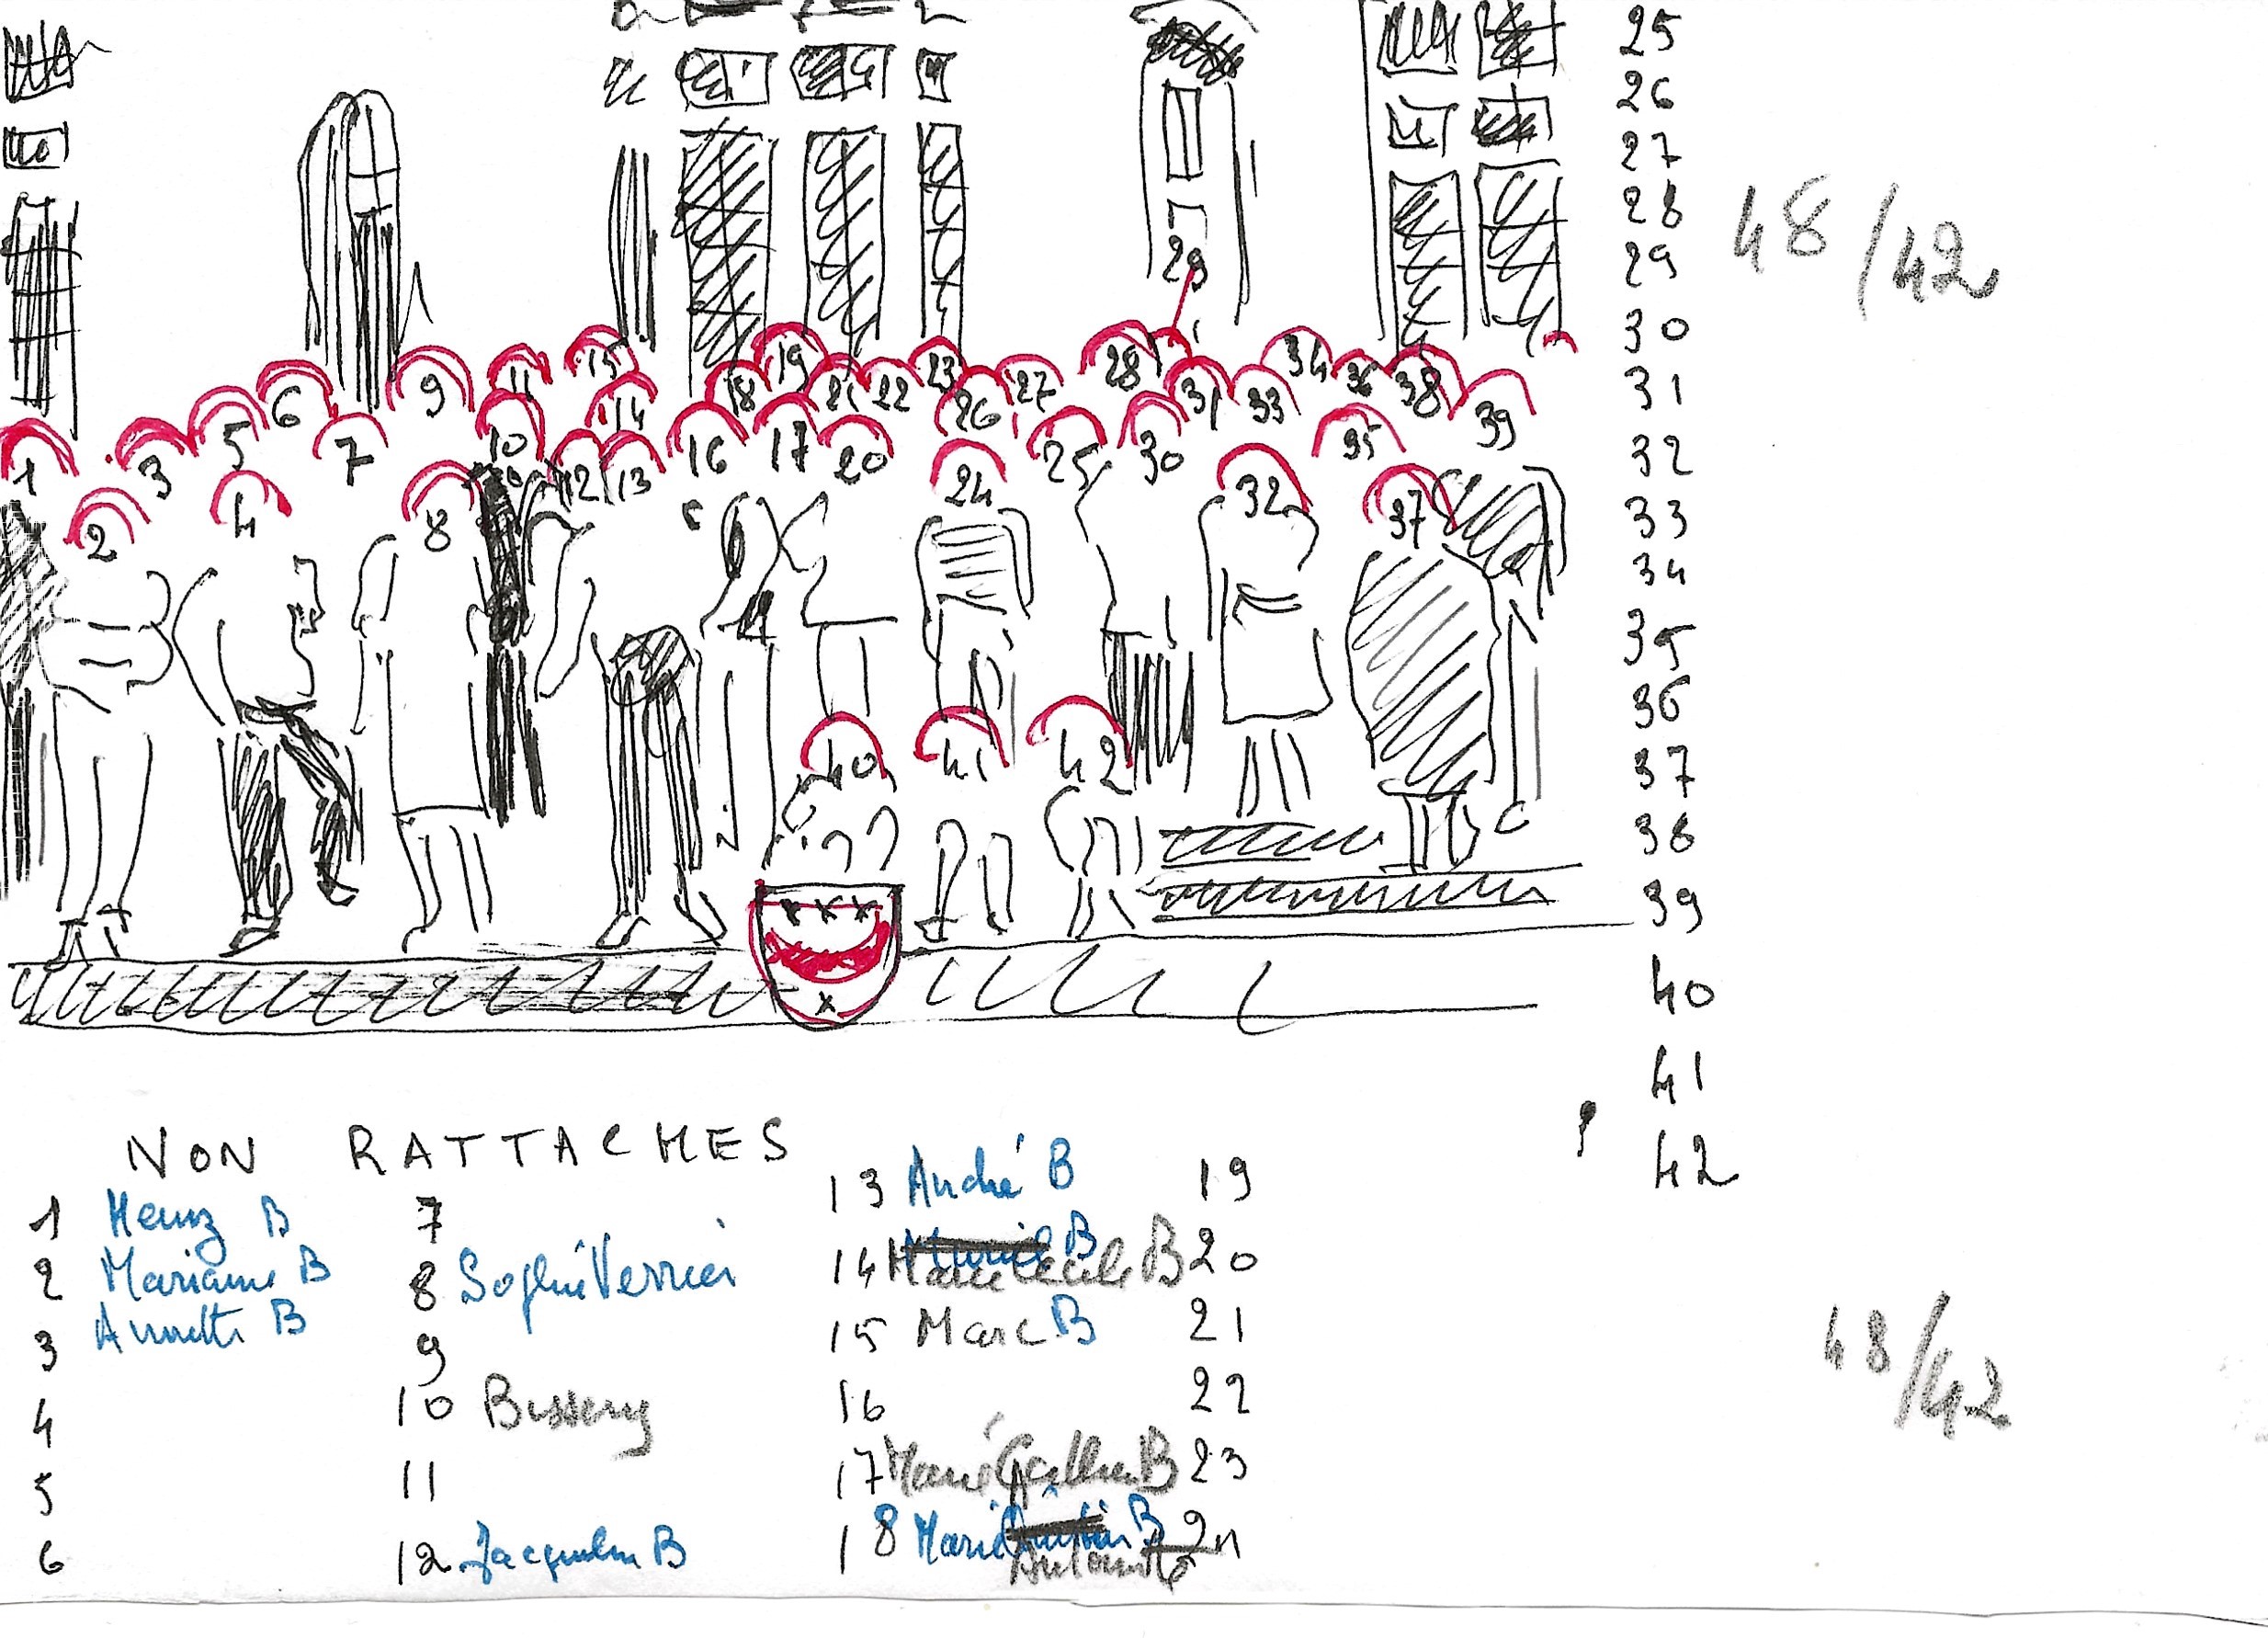 25
26
27
28
29
30
31
32
33
34
35
36
37
38
39
40
41
42
48/42
29
15 19 23 28 34
6 9 11 14 18 21 22 26 27 31 33 36 38 39
1 3 5 7 10 12 13 16 17 20 25 30 35
2 4 8 24 32 37
40 41 42
NON RATTACHES
1 Heinz B
2 Marianne B
3 Annette B
4
5
6
7
8 Sophie Verrier
9
10 Bussery
11
12 Jacqueline B
13 André B
14 Marie Cécile B
15 Marc B
16
17 Marie B
18 Marie B
19
20
21
22
23
24
48/42